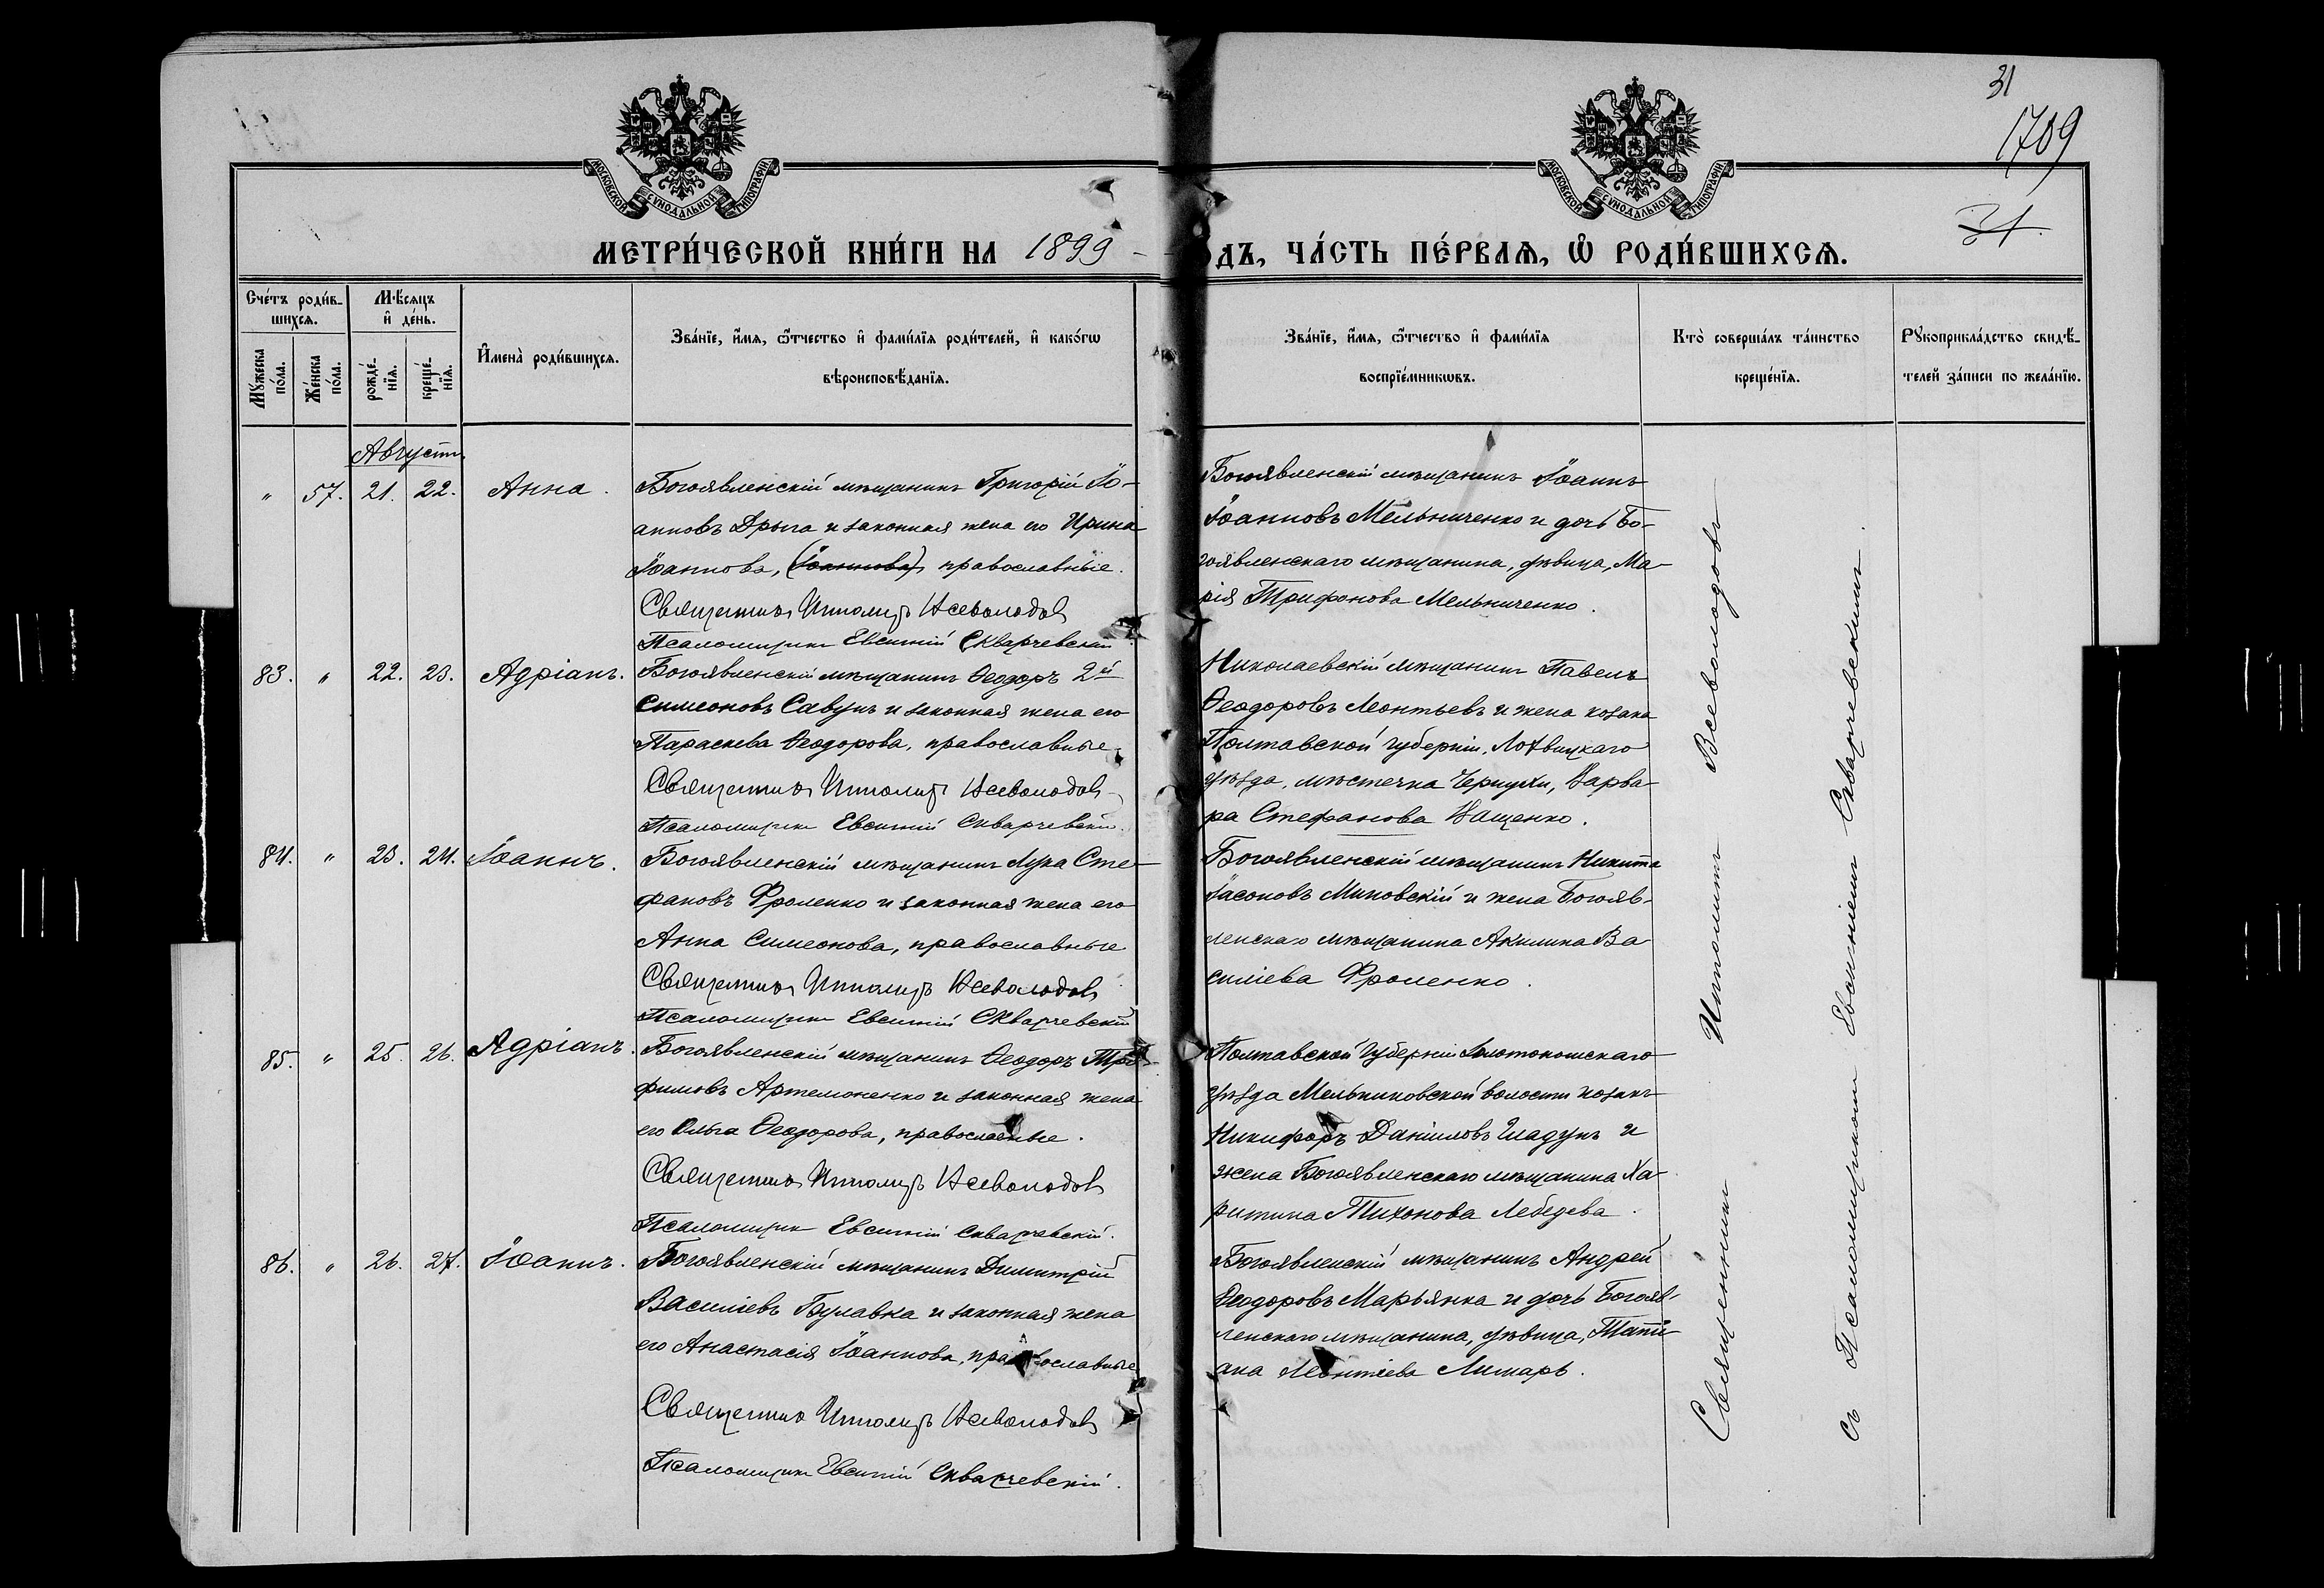 31
1709
31
МОСКОВСКОЙ СѴНОДАЛЬНОЙ ТИПОГРАФІИ
МОСКОВСКОЙ СѴНОДАЛЬНОЙ ТИПОГРАФІИ
МЕТРИ́ЧЕСКОЙ КНИ́ГИ НА 1899 ДЪ, ЧА́СТЬ ПЕ́РВАѦ, Ѽ РОДИ́ВШИХСѦ.
Сче́тъ роди́в-
шихсѧ.
Мѣ́сѧцъ
и҆ де́нь.
Мꙋ́жеска по́ла.
Же́нска по́ла.
рожде́-
нїѧ.
креще́-
нїѧ.
И҆мена̀ роди́вшихсѧ.
Зва́нїе, и҆́мѧ, ѻ҆́тчество и҆ фами́лїѧ роди́телей, и҆ како́гѡ
вѣроисповѣ́данїѧ.
Зва́нїе, и҆́мѧ, ѻ҆́тчество и҆ фами́лїѧ
воспрїе́мникѡвъ.
Кто̀ соверша́лъ та́инство
креще́нїѧ.
Рꙋкоприкла́дство свидѣ́-
телей за́писи по жела́нїю.
Августъ
" 57. 21. 22. Анна.
Богоявленскій мѣщанинъ Григорій Іо-
анновъ Дрыга и законная жена его Ирина
Іоаннова, (Іоаннова) православные.
Священникъ Ипполитъ Всеволодовъ
Псаломщикъ Евсигній Скварчевскій
Богоявленскій мѣщанинъ Іоаннъ
Іоанновъ Мельниченко и дочь Бо-
гоявленскаго мѣщанина, дѣвица, Ма-
рія Трифонова Мельниченко.
83. " 22. 23. Адріанъ.
Богоявленскій мѣщанинъ Ѳеодоръ 2й
Симеоновъ Савунъ и законная жена его
Параскева Ѳеодорова, православные.
Священникъ Ипполитъ Всеволодовъ
Псаломщикъ Евсигній Скварчевскій.
Николаевскій мѣщанинъ Павелъ
Ѳеодоровъ Леонтьевъ и жена козака
Полтавской губерніи, Лохвицкаго
уѣзда, мѣстечка Чернухи, Варва-
ра Стефанова Ващенко.
84. " 23. 24. Іоаннъ.
Богоявленскій мѣщанинъ Лука Сте-
фановъ Фроленко и законная жена его
Анна Симеонова, православные
Священникъ Ипполитъ Всеволодовъ
Псаломщикъ Евсигній Скварчевскій
Богоявленскій мѣщанинъ Никита
Іасоновъ Миновскій и жена Богояв-
ленскаго мѣщанина Акилина Ва-
силіева Фроленко.
85. " 25. 26. Адріанъ.
Богоявленскій мѣщанинъ Ѳеодоръ Тро-
фимовъ Артемоненко и законная жена
его Ольга Ѳеодорова, православные.
Священникъ Ипполитъ Всеволодовъ
Псаломщикъ Евсигній Скварчевскій.
Полтавской губерніи Золотоношскаго
уѣзда Мельниковской волости козакъ
Никифоръ Даніиловъ Гладунъ и
жена Богоявленскаго мѣщанина Ха-
ритина Тихонова Лебедева.
86. " 26. 27. Іоаннъ.
Богоявленскій мѣщанинъ Димитрій
Василіевъ Булавка и законная жена
его Анастасія Іоаннова, православные
Священникъ Ипполитъ Всеволодовъ
Псаломщикъ Евсигній Скварчевскій.
Богоявленскій мѣщанинъ Андрей
Ѳеодоровъ Марьянка и дочь Богояв-
ленскаго мѣщанина, дѣвица, Таті-
ана Леонтіева Лимарь.
Священникъ Ипполитъ Всеволодовъ
съ Псаломщикомъ Евсигніемъ Скварчевскимъ.